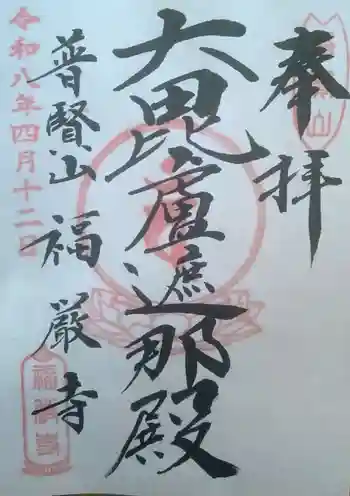 奉拝
大毘盧遮那殿
普賢山 福嚴寺
令和八年四月十二日